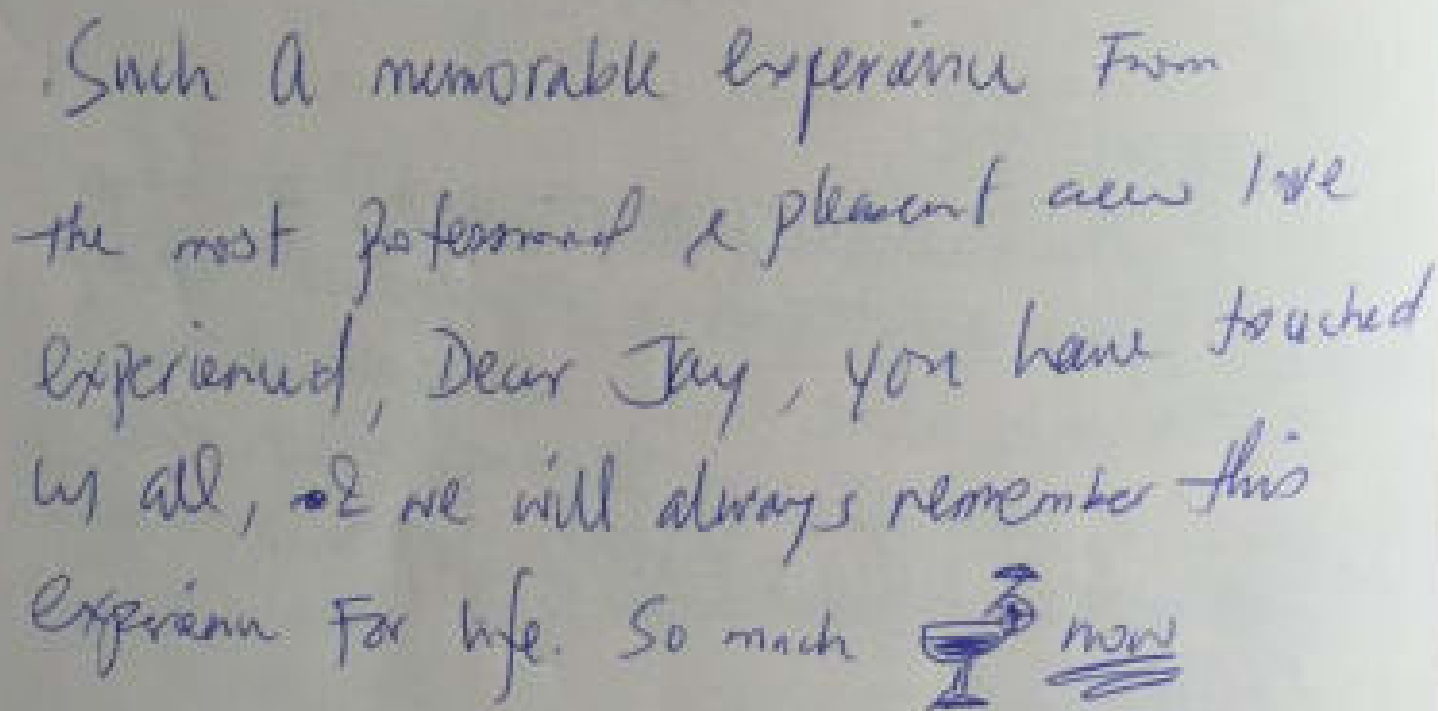 Such A memorable experience From
the most professional & pleasant crew I've
experienced, Dear Jay, you have touched
us all, & we will always remember this
experience For life. So much now